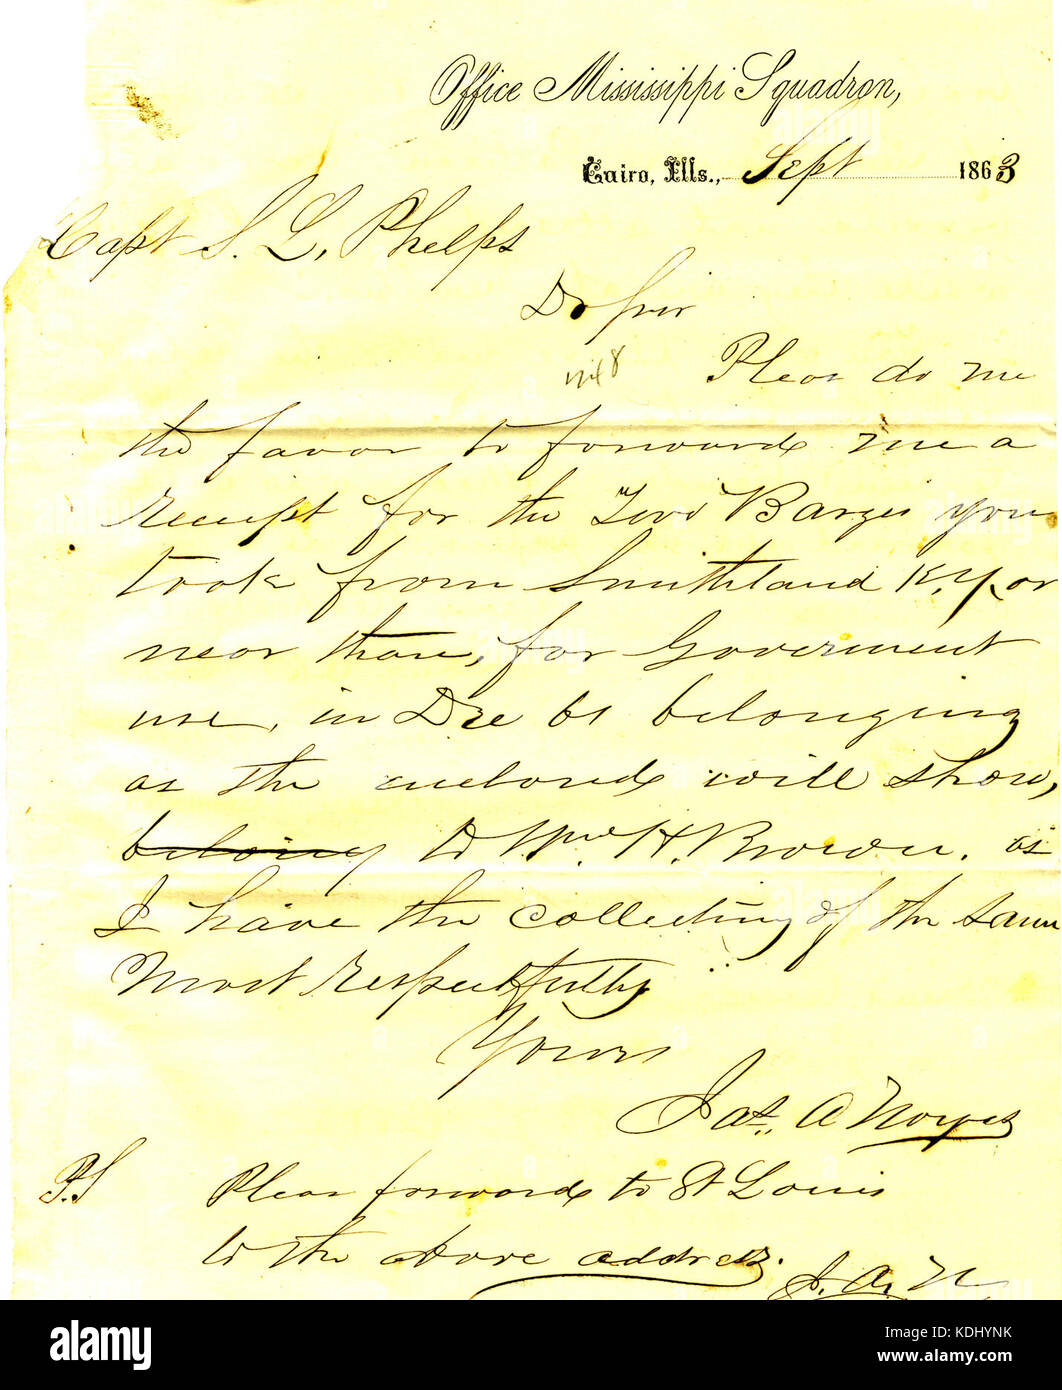 Office Mississippi Squadron,
Cairo, Ills., Sept 1863
Capt S. L. Phelps
Dr Sir
Pleas do me
the favor to forward me a
receipt for the Two Barges you
took from Smithland K.Y. or
near thare, for Government
use, in Dec 61 belonging
as the enclosed will show,
belong to Wm. H. Brown. as
I have the collecting of the same
Most respectfully
Yours
Jas. A
P.S Pleas forward to St Louis
to the above address.
J. A. N
alamy
Image ID: KDHYNK
www.alamy.com